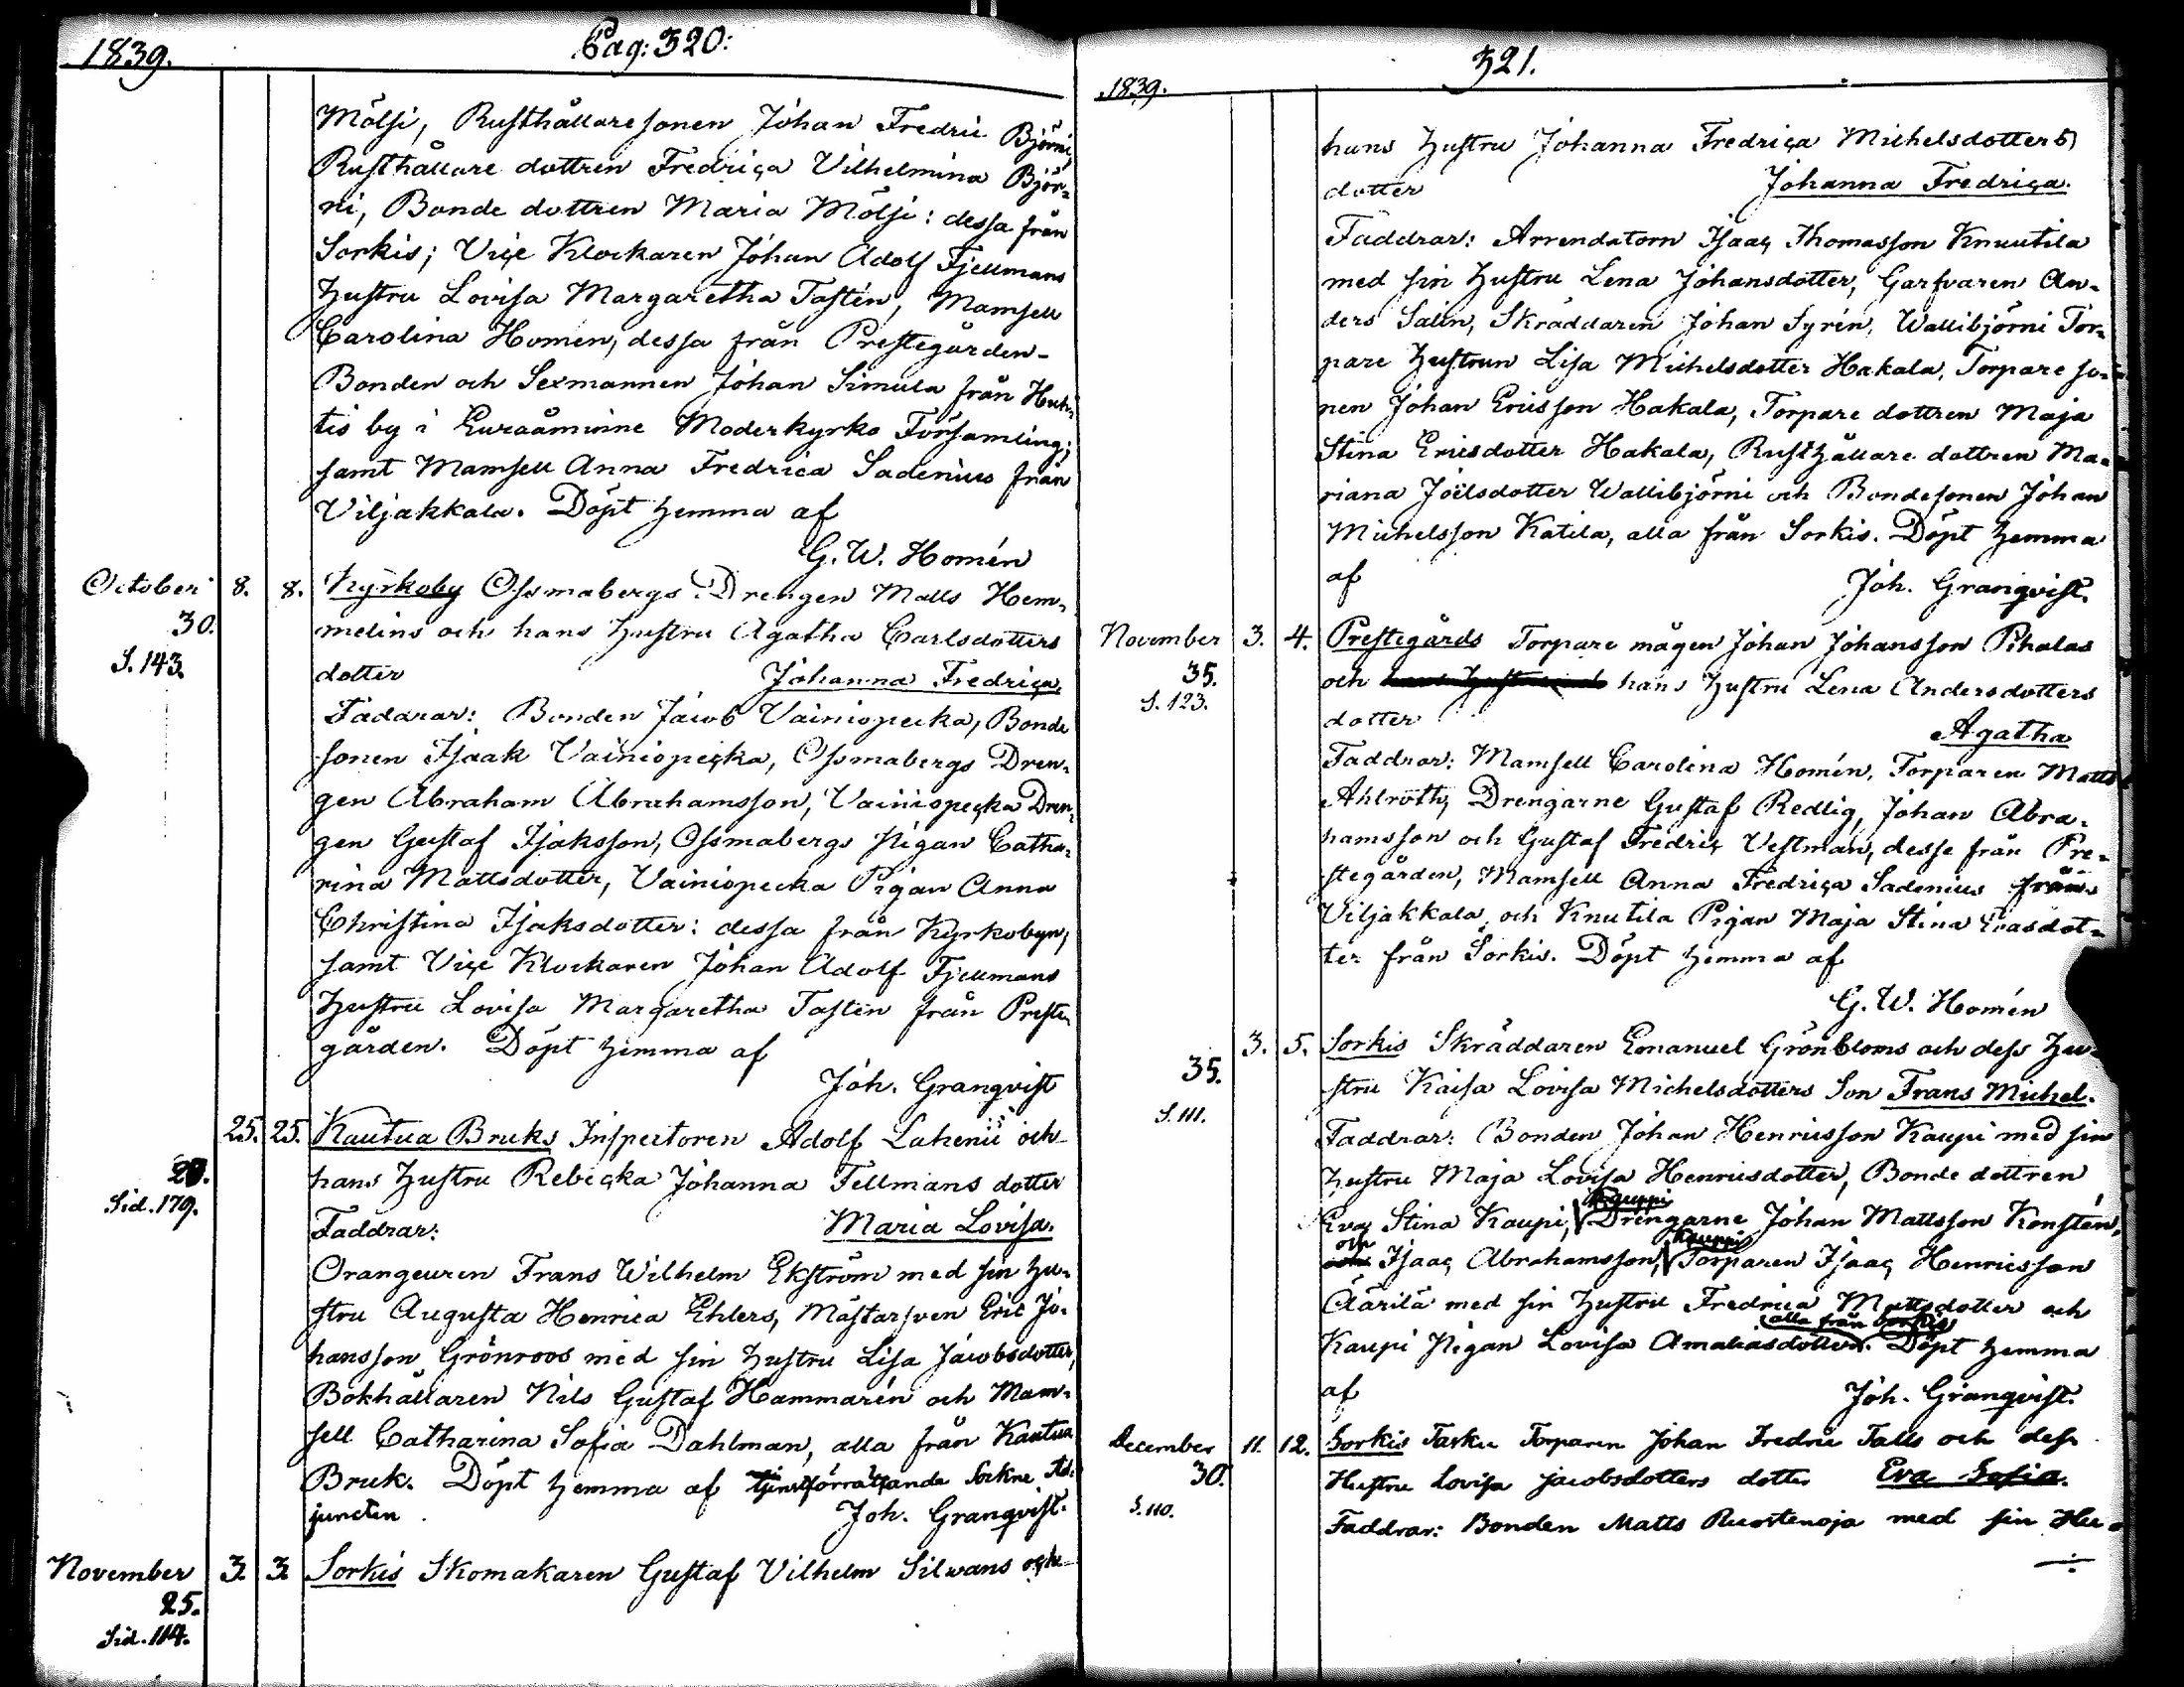 1839.
Pag: 320:
Mölsi, Rusthållaresonen Johan Fredric Björni,
Rusthållare dottren Fredrica Vilhelmina Björ-
ni, Bonde dottren Maria Mölsi: dessa från
Sorkis; Vice Klockaren Johan Adolf Fjellmans
hustru Lovisa Margaretha Tastén, Mamsell
Carolina Homén, dessa från Prestegården-
Bonden och Sexmannen Johan Simula från Huh-
tis by i Euraåminne Moderkyrko Församling;
samt Mamsell Anna Fredrica Sadenius från
Viljakkala. Döpt hemma af
G. W. Homén
October 8. 8. Kyrkoby Ossmabergs Drengen Matts Hem-
30. melins och hans hustru Agatha Carlsdotters
S. 143. dotter Johanna Fredrica,
Faddrar: Bonden Jacob Vainiopecka, Bonde
sonen Isaak Vainiopecka, Ossmabergs Dren-
gen Abraham Abrahamsson, Vainiopecka Dren-
gen Gustaf Isaksson, Ossmabergs Pigan Catha-
rina Mattsdotter, Vainiopecka Pigan Anna
Christina Isaksdotter: dessa från Kyrkobyn,
samt Vice Klockaren Johan Adolf Fjellmans
hustru Lovisa Margaretha Tastén från Preste-
gården. Döpt hemma af
Joh. Granqvist
25. 25. Kautua Bruks Inspectoren Adolf Lakenii och
hans hustru Rebecka Johanna Fellmans dotter
Sid. 179.
Faddrar: Maria Lovisa.
Orangeuren Frans Wilhelm Ekström med sin hu-
stru Augusta Henrica Ehlers, Mästarsven Eric Jo-
hansson Grönroos med sin hustru Lisa Jacobsdotter,
Bokhållaren Nils Gustaf Hammarén och Mam-
sell Catharina Sofia Dahlman, alla från Kautua
Bruk. Döpt hemma af tjenstförrättande Sockne Ad-
juncten Joh. Granqvist.
November 3. 3. Sorkis Skomakaren Gustaf Vilhelm Silvans och
25.
Sid. 114.
321.
1839.
hans hustru Johanna Fredrica Michelsdotters
dotter Johanna Fredrica.
Faddrar: Arrendatorn Isaac Thomasson Knuutila
med sin hustru Lena Johansdotter, Garfvaren An-
ders Salin, Skräddaren Johan Syrén, Wallibjörni Tor-
pare hustrun Lisa Michelsdotter Hakala, Torpare so-
nen Johan Ericsson Hakala, Torpare dottren Maja
Stina Ericsdotter Hakala, Rusthållare dottren Ma-
riana Joëlsdotter Wallibjörni och Bondesonen Johan
Michelsson Katila, alla från Sorkis. Döpt hemma
af Joh. Granqvist.
November 3. 4. Prestegårds Torpare mågen Johan Johansson Pihalas
35. och hans hustru Lena Andersdotters
S. 123. dotter Agatha
Faddrar: Mamsell Carolina Homén, Torparen Matts
Ahlroth, Drengarne Gustaf Redlig, Johan Abra-
hamsson och Gustaf Fredric Vestman, desse från Pre-
stegården, Mamsell Anna Fredrica Sadenius från
Viljakkala och Knutila Pigan Maja Stina Evasdot-
ter från Sorkis. Döpt hemma af
G. W. Homén
3. 5. Sorkis Skräddaren Emanuel Grönbloms och dess hu-
35. stru Kaisa Lovisa Michelsdotters Son Frans Michel.
S. 111.
Faddrar: Bonden Johan Henricsson Kaupi med sin
hustru Maja Lovisa Henricsdotter, Bonde dottren
Eva Stina Kaupi, Kauppi Drengarne Johan Mattsson Konstén,
och Isaac Abrahamsson, Kauppi Torparen Isaac Henricsson
Äärilä med sin hustru Fredrica Mattsdotter och
alla från Sorkis
Kaupi Pigan Lovisa Amaliasdotter. Döpt hemma
af Joh. Granqvist.
December 11. 12. Sorkis Tasku Torparen Johan Fredric Talls och dess
30. Hustru Lovisa Jacobsdotters dotter Eva Sofia.
S. 110. Faddrar: Bonden Matts Ruostenoja med sin Hu-